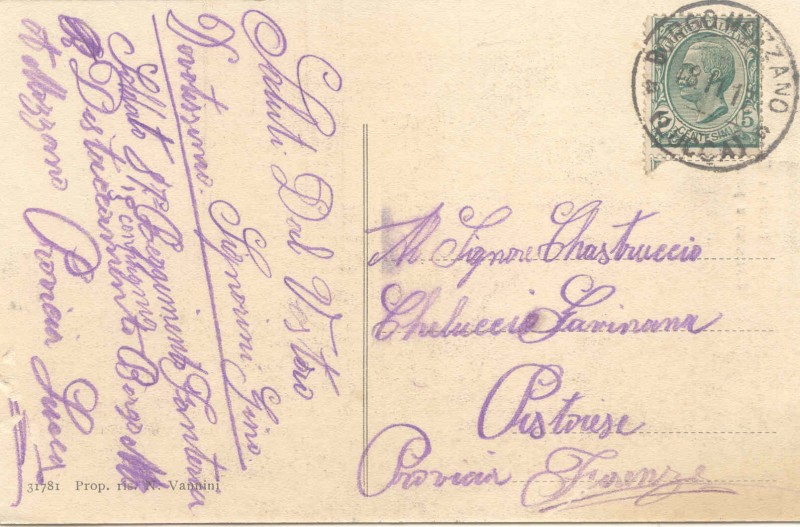 Saluti Dal Vostro
Devotissimo. Signorini Gino
Soldato 81º Regimento Fanteria
Compagnia
Distaccamento Borgo
A Mozzano Provincia Lucca
Al Signore Chastruccio
Cheluccio Gavinana
Pistoiese
Provincia Firenze
BORGO MOZZANO
(LUCCA)
CENTESIMI
5
31781 Prop. ris. N. Vannini